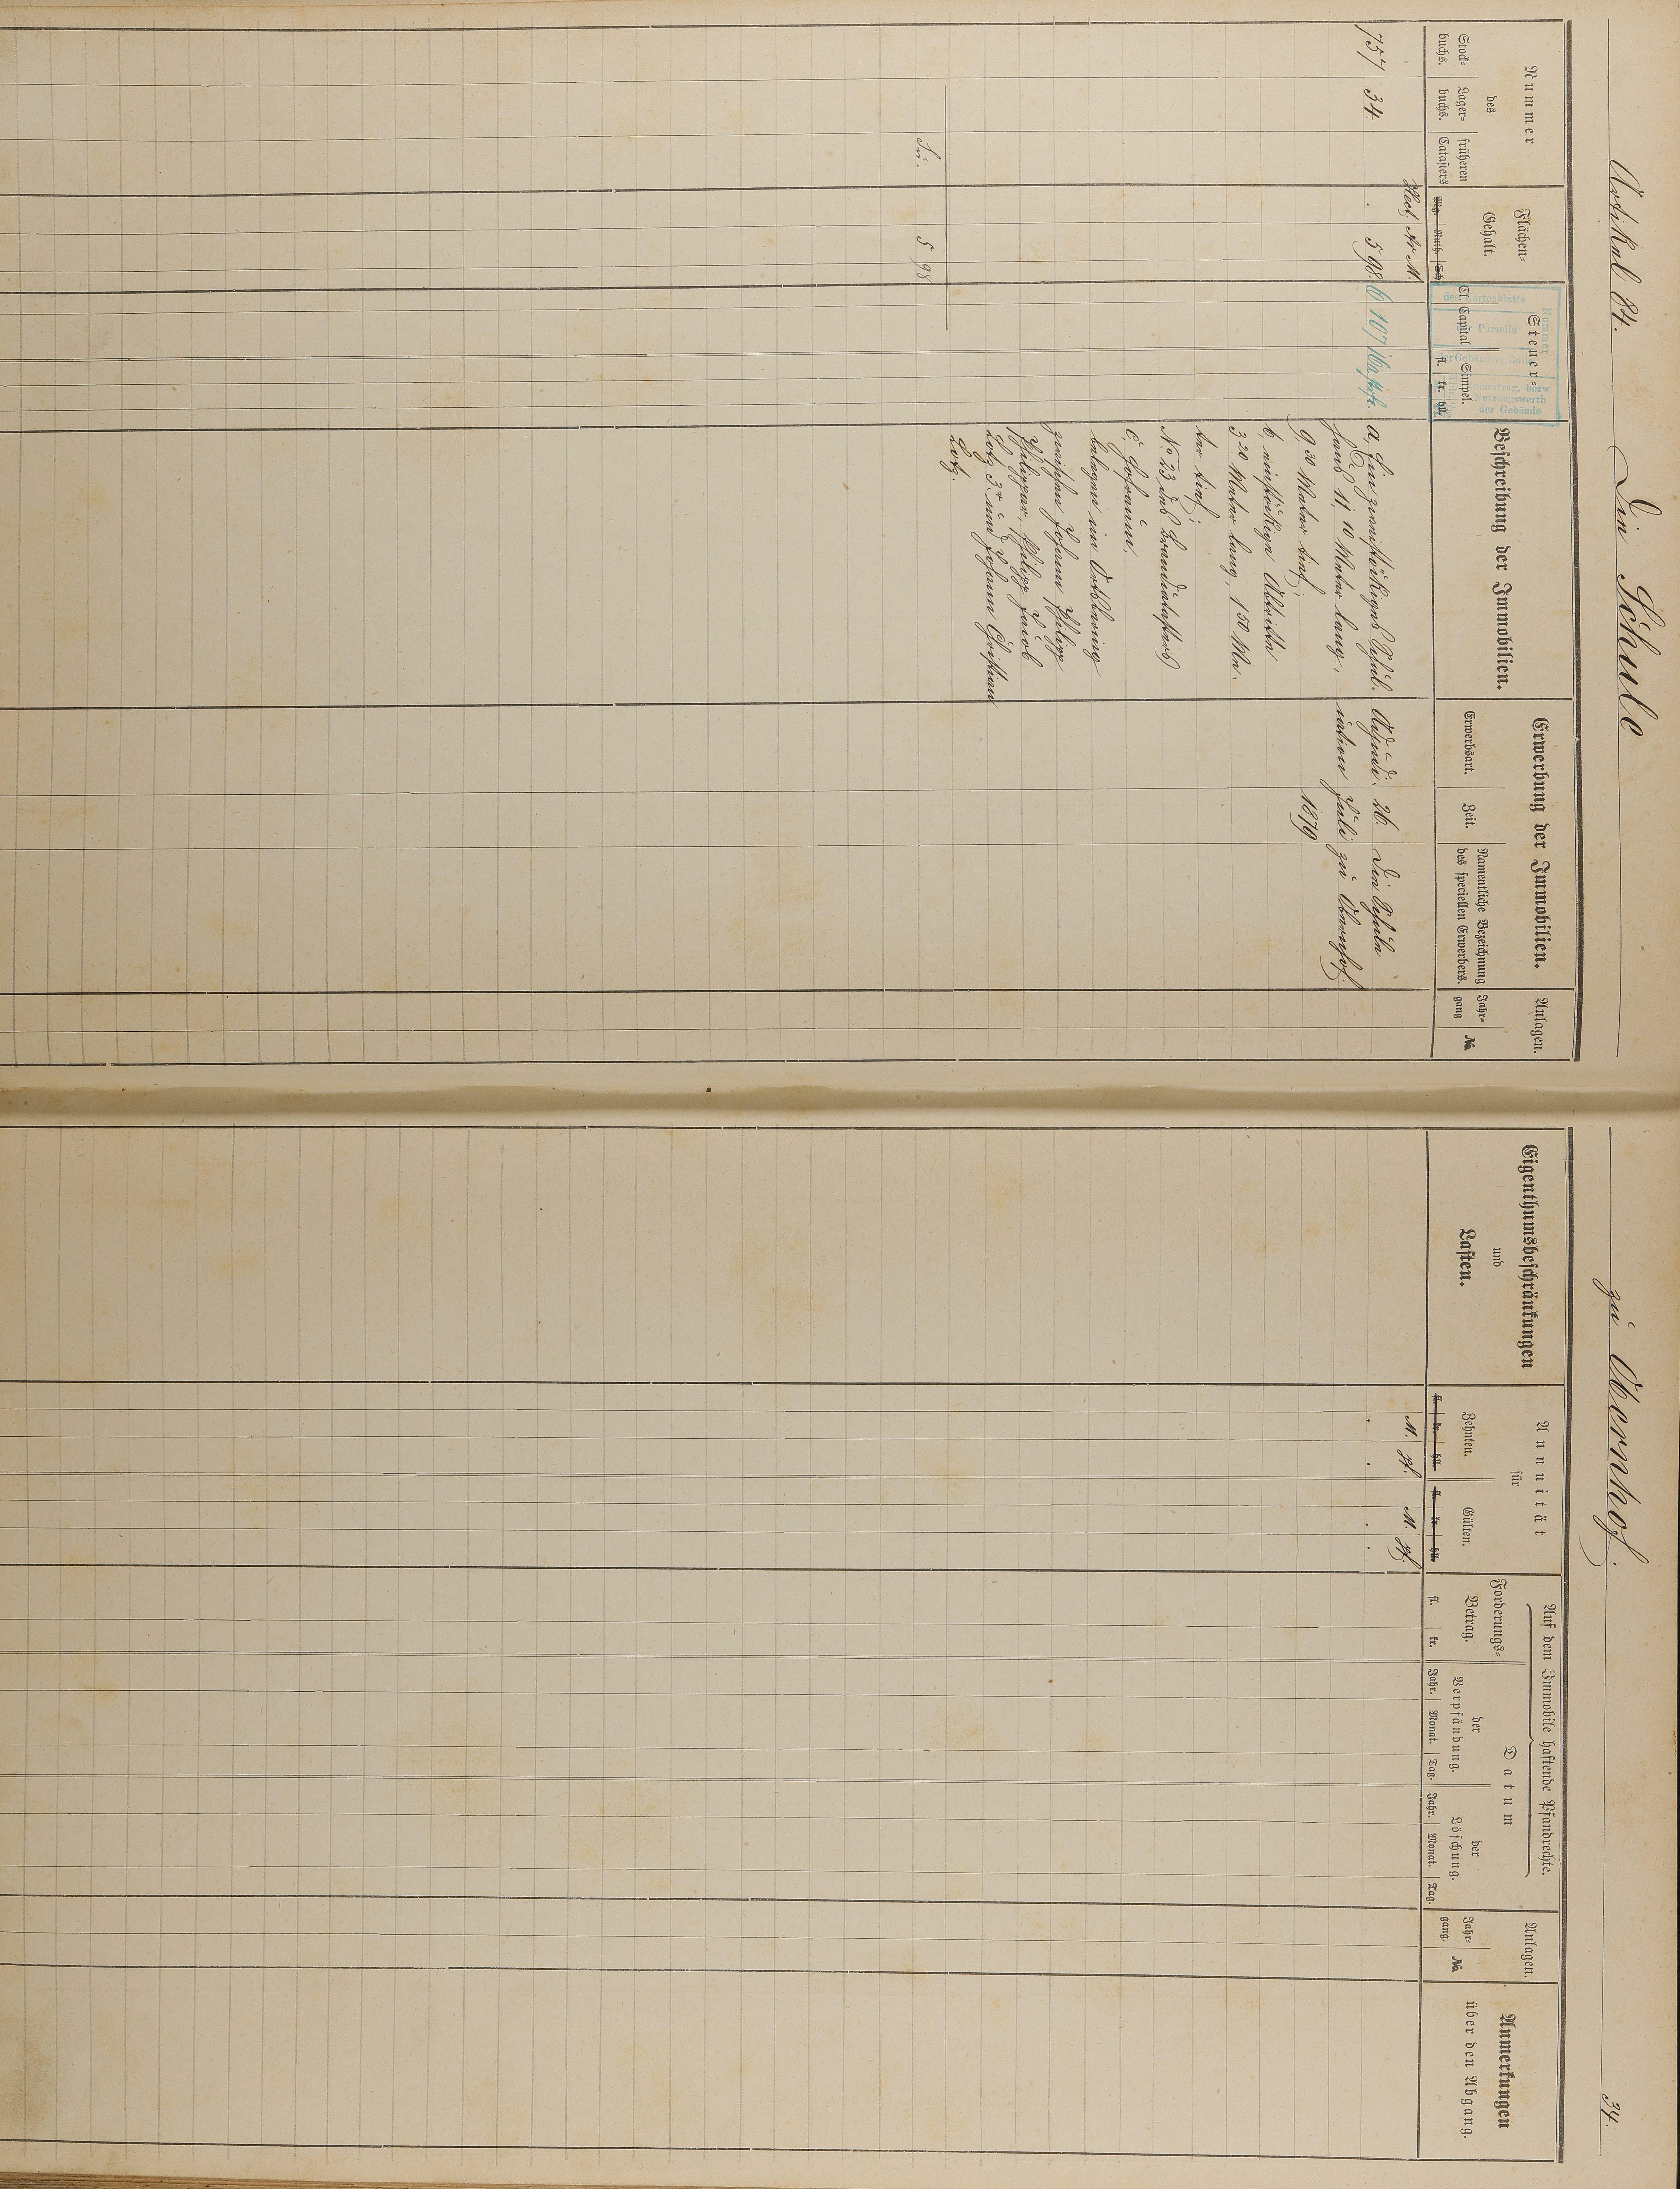 Artikel 84. Die Schule
zu Obernhof.
34.
Nummer
des
Stock-
buchs.
Lager-
buchs.
früheren
Catasters
Flächen-
Gehalt.
Mg. Ruth. Sch
Hect. Ar M.
Steuer-
Cl. Capital Simpel.
fl. kr. hll.
Nummer
des Kartenblatts
der Parzelle
der Gebäudest. Rolle
Reinertrag. bezw.
Nutzungswerth
der Gebäude
Beschreibung der Immobilien.
Erwerbung der Immobilien.
Erwerbsart.
Zeit.
Namentliche Bezeichnung
des speciellen Erwerbers.
Anlagen.
Jahr-
gang
No
757 34 . 5 98 6 107/16
a, Ein zweistöckiges Schul-
haus 11,10 Meter lang,
9,30 Meter tief;
b, einstöckige Abtritte
3,20 Meter lang, 1,50 Me-
ter tief;
No 23 des Brandcatasters
c, Hofraum,
belegen im Ortsbering
zwischen Johann Philipp
Philippar, Philipp Jacob
Lotz 3r und Johann Christian
Lotz.
Adjudi-
cation
26.
Juli
1879
Die Schule
zu Obernhof.
Su. 5 98
Eigenthumsbeschränkungen
und
Lasten.
Annuität
für
Zehnten.
fl. kr. hll.
M. Pf.
Gülten.
fl. kr. hll.
M. Pf.
Auf dem Immobile haftende Pfandrechte.
Forderungs-
Betrag.
fl. kr.
Datum
der
Verpfändung.
Jahr. Monat. Tag.
der
Löschung.
Jahr. Monat. Tag.
Anlagen.
Jahr-
gang.
No
Anmerkungen
über den Abgang.